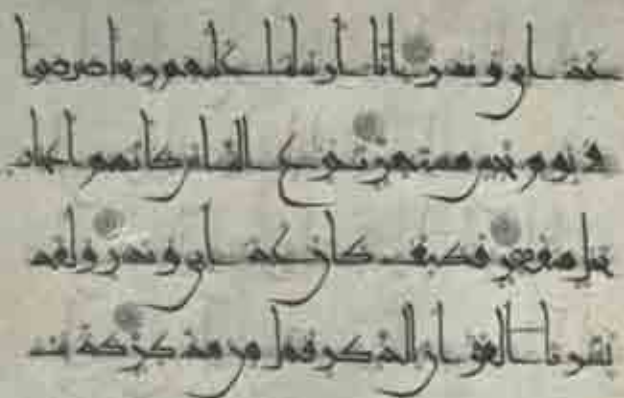 عذابي ونذر انا ارسلنا عليهم ريحا صرصرا
في يوم نحس مستمر تنزع الناس كانهم اعجاز
نخل منقعر فكيف كان عذابي ونذر ولقد
يسرنا القران للذكر فهل من مدكر كذبت